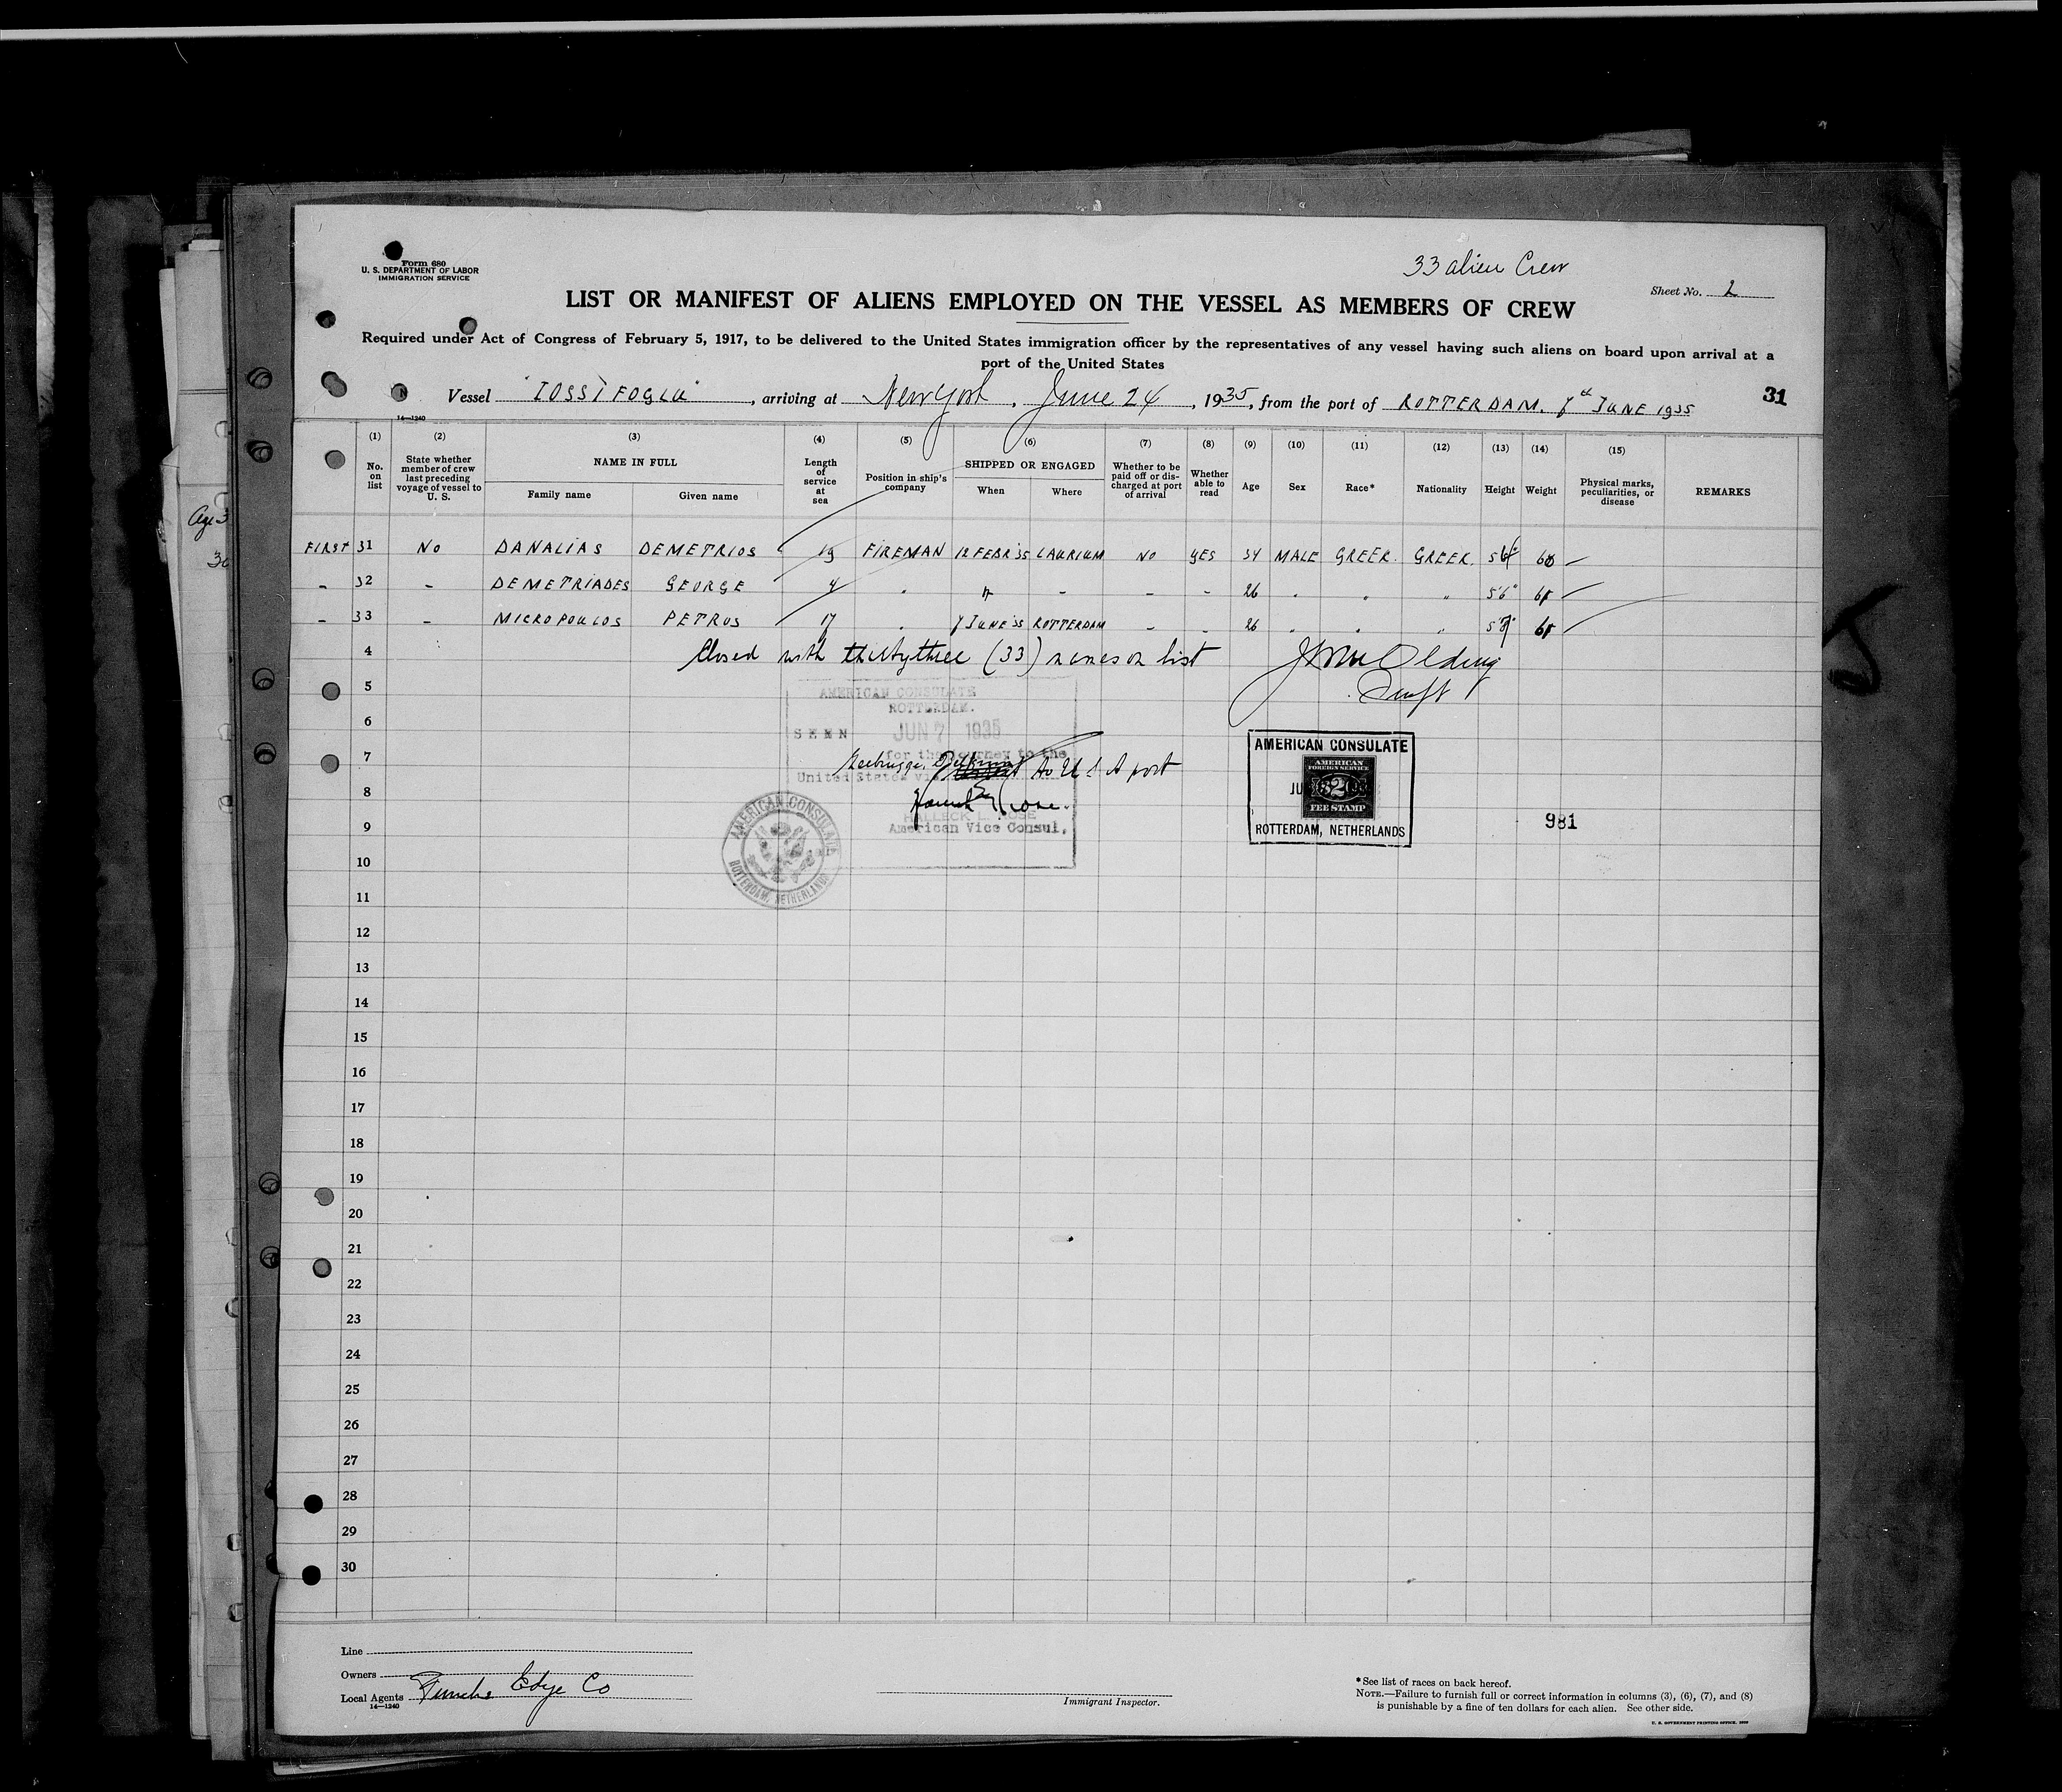 Form 680
U. S. DEPARTMENT OF LABOR
IMMIGRATION SERVICE
33 alien Crew
Sheet No. 2
LIST OR MANIFEST OF ALIENS EMPLOYED ON THE VESSEL AS MEMBERS OF CREW
Required under Act of Congress of February 5, 1917, to be delivered to the United States immigration officer by the representatives of any vessel having such aliens on board upon arrival at a
port of the United States
Vessel "IOSSIFOGLU", arriving at New York, June 24, 1935, from the port of ROTTERDAM. 7th JUNE 1935
31
14—1240
(1) No. on list
(2) State whether member of crew last preceding voyage of vessel to U. S.
(3) NAME IN FULL Family name Given name
(4) Length of service at sea
(5) Position in ship's company
(6) SHIPPED OR ENGAGED When Where
(7) Whether to be paid off or discharged at port of arrival
(8) Whether able to read
(9) Age
(10) Sex
(11) Race*
(12) Nationality
(13) Height
(14) Weight
(15) Physical marks, peculiarities, or disease
REMARKS
FIRST 31 NO DANALIAS DEMETRIOS 19 FIREMAN 12 FEBR '35 LAURIUM NO YES 34 MALE GREEK. GREEK.
- 32 - DEMETRIADES GEORGE 4 " " - - - 26 " " " 5'6"
- 33 - MICROPOULOS PETROS 17 " 7 JUNE '35 ROTTERDAM - - 26 " " "
4 Closed with thirty three (33) names on list
5
6
7
8
9
10
11
12
13
14
15
16
17
18
19
20
21
22
23
24
25
26
27
28
29
30
AMERICAN CONSULATE
ROTTERDAM.
SEEN JUN 7 1935
for the journey to the
United States via
Zeebrugge, to U S A port
HALLECK L. ROSE
American Vice Consul.
AMERICAN CONSULATE
ROTTERDAM, NETHERLANDS
AMERICAN CONSULATE
AMERICAN
FOREIGN SERVICE
$2
FEE STAMP
ROTTERDAM, NETHERLANDS
981
Line
Owners
Local Agents Funch Edye Co
14—1240
Immigrant Inspector.
*See list of races on back hereof.
NOTE.—Failure to furnish full or correct information in columns (3), (6), (7), and (8)
is punishable by a fine of ten dollars for each alien. See other side.
U. S. GOVERNMENT PRINTING OFFICE